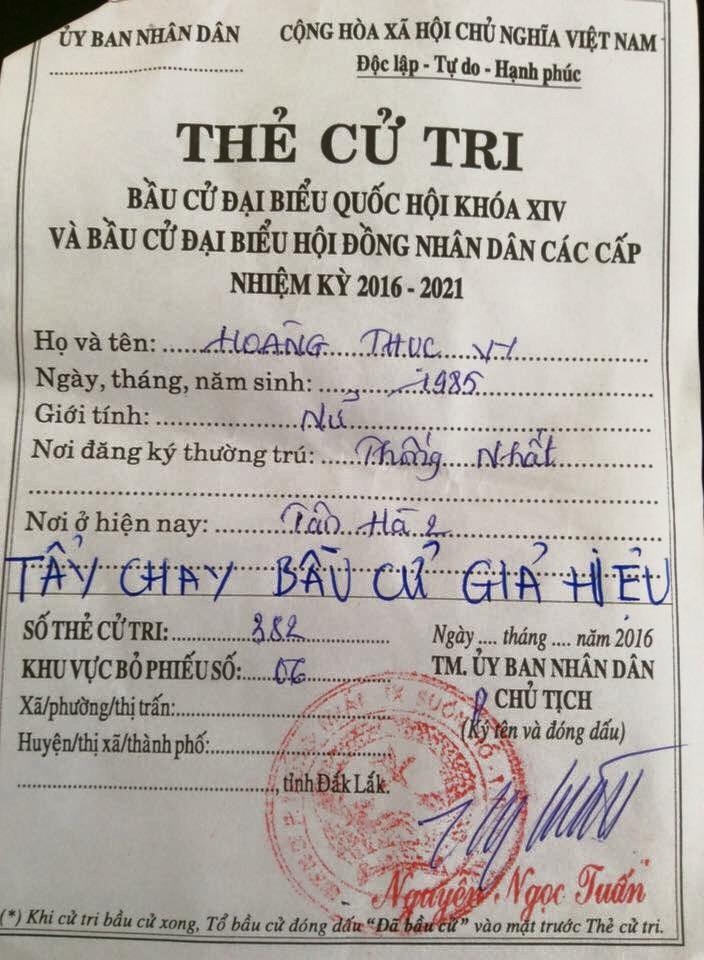 ỦY BAN NHÂN DÂN
CỘNG HÒA XÃ HỘI CHỦ NGHĨA VIỆT NAM
Độc lập - Tự do - Hạnh phúc
THẺ CỬ TRI
BẦU CỬ ĐẠI BIỂU QUỐC HỘI KHÓA XIV
VÀ BẦU CỬ ĐẠI BIỂU HỘI ĐỒNG NHÂN DÂN CÁC CẤP
NHIỆM KỲ 2016 - 2021
Họ và tên: HOÀNG THUC VY
Ngày, tháng, năm sinh: 1985
Giới tính: Nữ
Nơi đăng ký thường trú: Thống Nhất
Nơi ở hiện nay: Tân Hà 2
TẨY CHAY BẦU CỬ GIẢ HIỆU
SỐ THẺ CỬ TRI: 382
KHU VỰC BỎ PHIẾU SỐ: 06
Xã/phường/thị trấn:
Huyện/thị xã/thành phố:
, tỉnh Đắk Lắk.
Ngày .... tháng .... năm 2016
TM. ỦY BAN NHÂN DÂN
CHỦ TỊCH
(Ký tên và đóng dấu)
Nguyễn Ngọc Tuấn
(*) Khi cử tri bầu cử xong, Tổ bầu cử đóng dấu "Đã bầu cử" vào mặt trước Thẻ cử tri.